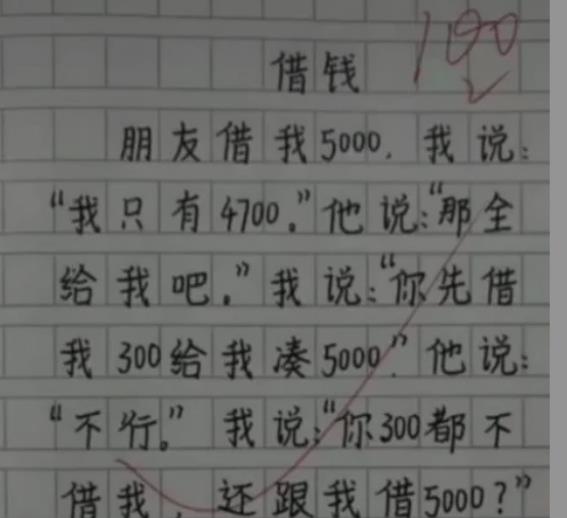 100
借钱
朋友借我5000，我说：
“我只有4700。”他说：“那全
给我吧。”我说：“你先借
我300给我凑5000”他说：
“不行。”我说：“你300都不
借我，还跟我借5000？”